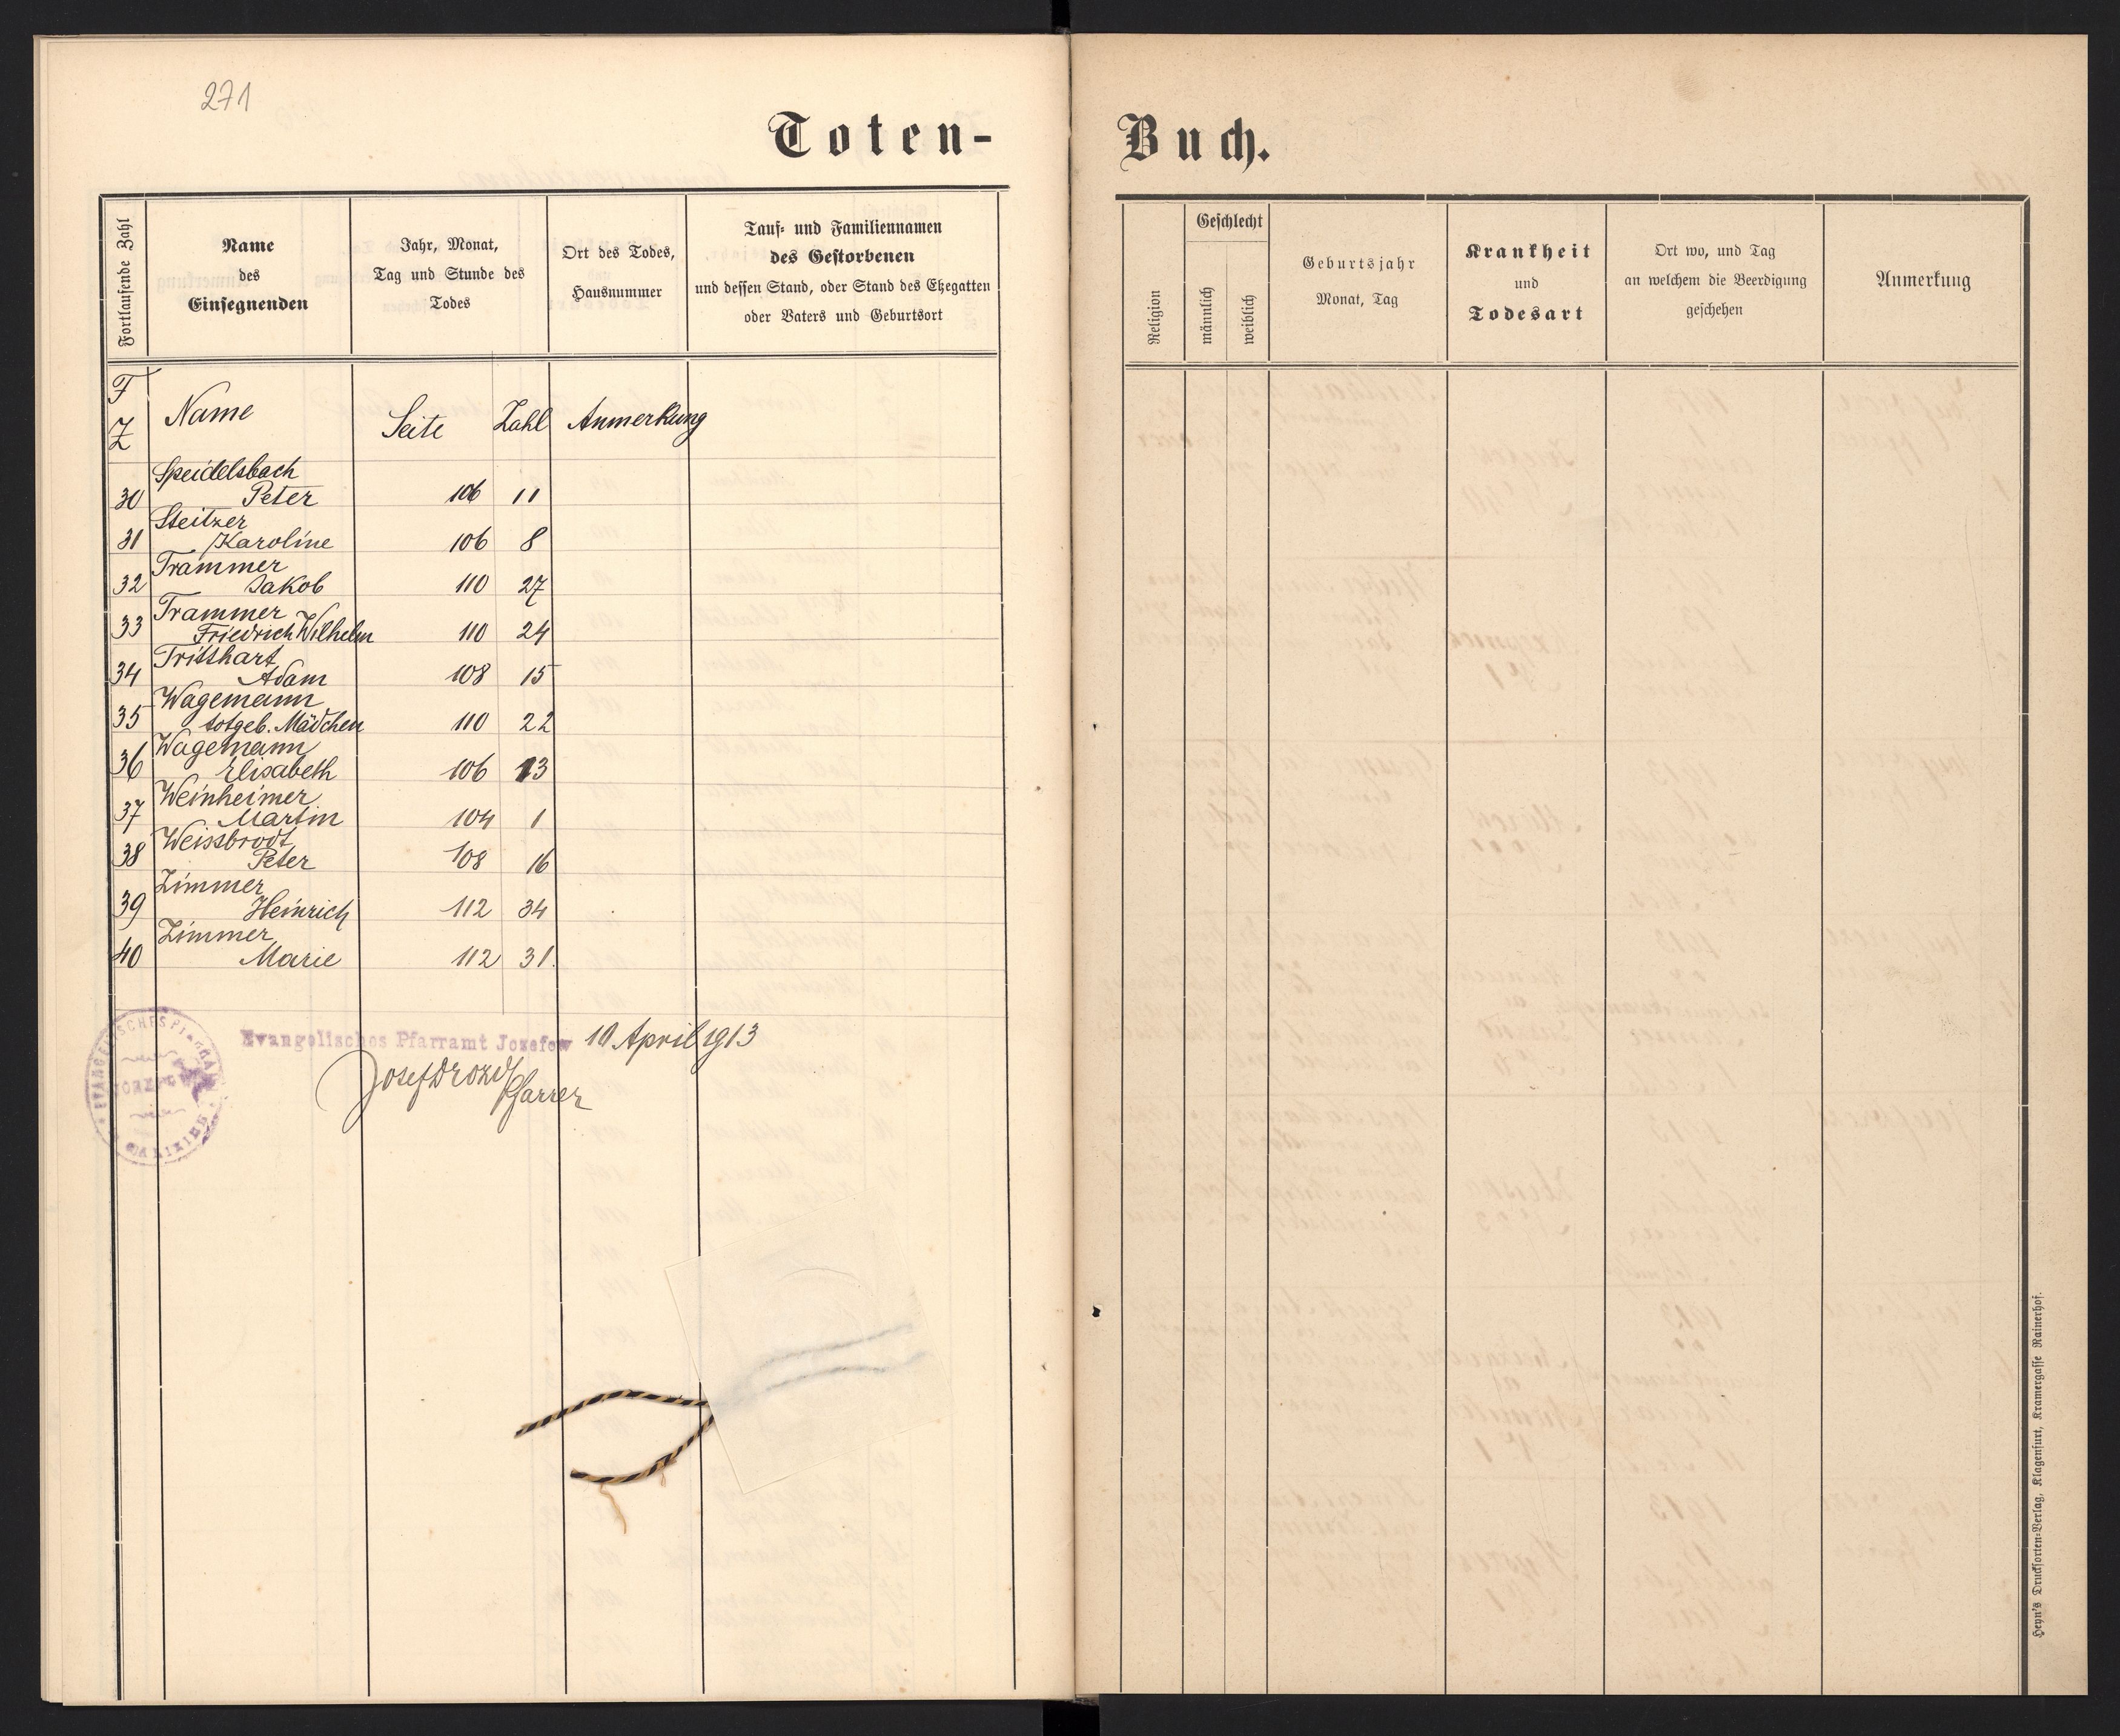 271
Toten-
Fortlaufende Zahl
Name
des
Einsegnenden
Jahr, Monat,
Tag und Stunde des
Todes
Ort des Todes,
Hausnummer
Tauf- und Familiennamen
des Gestorbenen
und dessen Stand, oder Stand des Ehegatten
oder Vaters und Geburtsort
F
Z
Name
Seite
Zahl
Anmerkung
Speidelsbach
30 Peter 106 11
Steitzer
31 Karoline 106 8
Trammer
32 Jakob 110 27
Trammer
33 Friedrich Wilhelm 110 24
Tritthart
34 Adam 108 15
Wagemann
35 totgeb. Mädchen 110 22
Wagemann
36 Elisabeth 106 13
Weinheimer
37 Martin 104 1
Weissbrodt
38 Peter 108 16
Zimmer
39 Heinrich 112 34
Zimmer
40 Marie 112 31.
Evangelisches Pfarramt Jozefow 10 April 1913
Josef Drozd
Pfarrer
Buch.
Religion
Geschlecht
männlich
weiblich
Geburtsjahr
Monat, Tag
Krankheit
und
Todesart
Ort wo, und Tag
an welchem die Beerdigung
geschehen
Anmerkung
Heyn's Drucksorten-Verlag, Klagenfurt, Kramergasse Rainerhof.